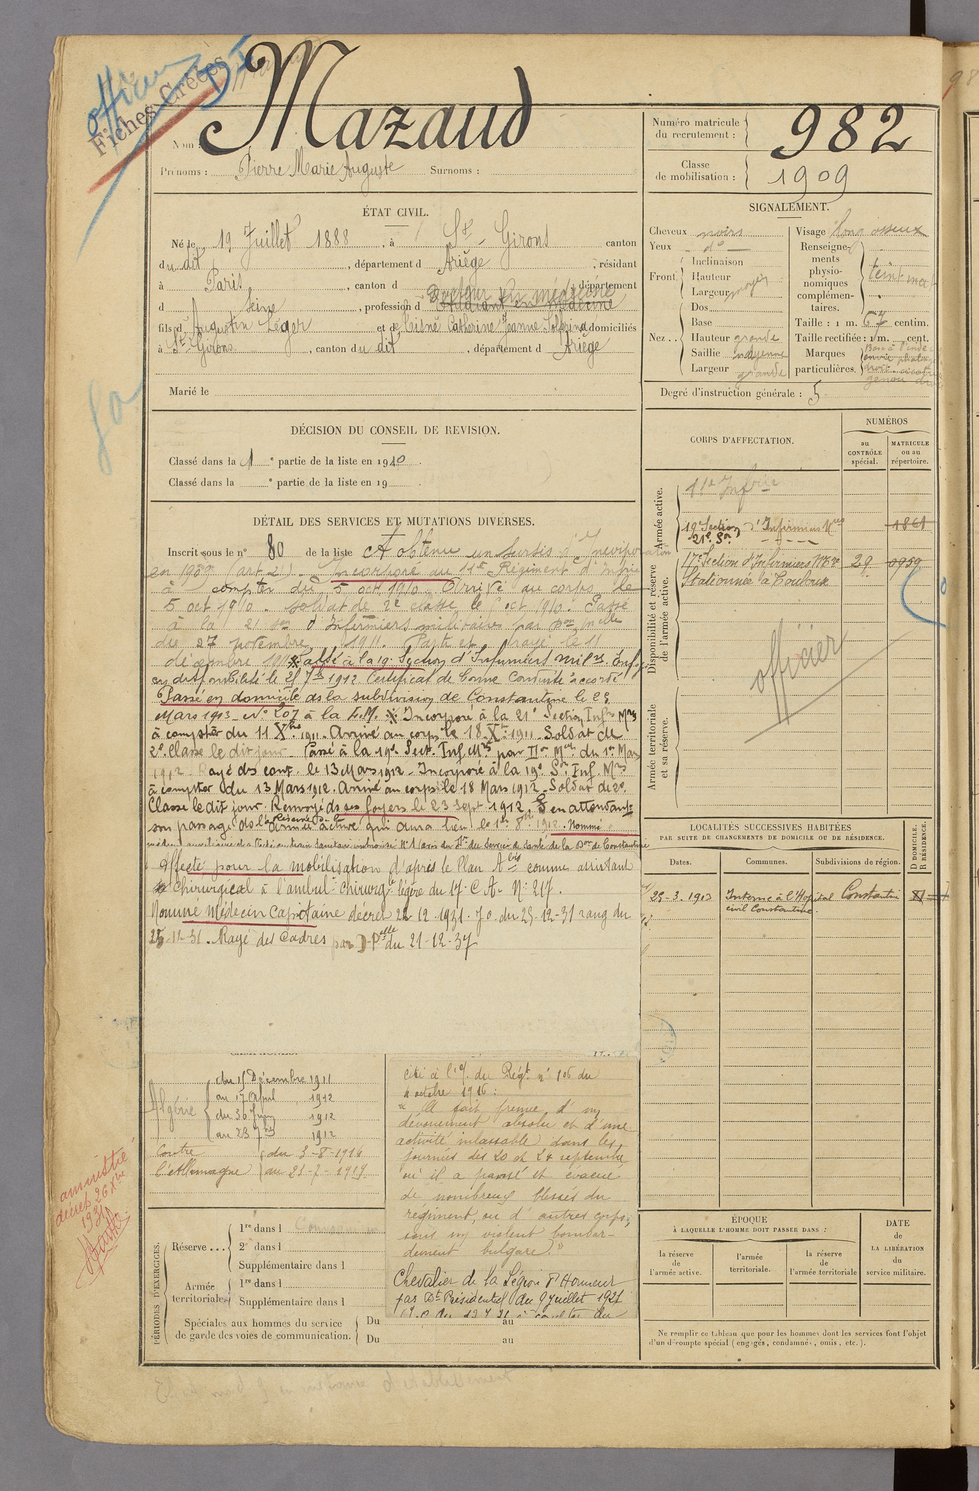 officier
Fiches Créées
Mazaud
Nom :
Prénoms : Pierre Marie Auguste Surnoms :
Numéro matricule du recrutement : 982
Classe de mobilisation : 1909
ÉTAT CIVIL.
Né le 19 Juillet 1888, à St-Girons canton
du dit, département d Ariège, résidant
à Paris, canton d département
d Seine, profession d Docteur en médecine Etudiant en médecine
fils d'Augustin Léger et de Cisné Catherine Jeanne domiciliés
à St Girons, canton du dit, département d Ariège
Marié le
SIGNALEMENT.
Cheveux noirs
Yeux do
Front Inclinaison
Hauteur
Largeur moyen
Nez Dos
Base
Hauteur grande
Saillie moyenne
Largeur grande
Visage long osseux
Renseignements physionomiques complémentaires. teint mat
Taille : 1 m. 67 centim.
Taille rectifiée : 1 m. cent.
Marques particulières.
Degré d'instruction générale : 5
DÉCISION DU CONSEIL DE REVISION.
Classé dans la 1e partie de la liste en 1910.
Classé dans la e partie de la liste en 19
DÉTAIL DES SERVICES ET MUTATIONS DIVERSES.
Inscrit sous le n° 80 de la liste A obtenu un sursis d'incorporation
en 1909 (art. 21). Incorporé au 11e Régiment d'Infrie
à compter du 5 oct 1910. Arrivé au corps le
5 oct 1910. soldat de 2e classe le oct 1910. Passé
à la 21 son d'Infirmiers militaires par
du 27 novembre 1911. Parti et rayé le 11
décembre 1911. affté à la 19e Section d'Infirmiers milres.
en disponibilité le 1912 Certificat de bonne Conduite accordé
Passé en domicile ds la subdivision de Constantine le 28
Mars 1913 - N° 207 à la Incorporé à la 21e Section Infrs Mres
à compter du 11 Xbre 1911. Arrivé au corps le 18 Xbre 1911. Soldat de
2e classe le dit jour. Passé à la 19e Sect. Inf. Mres par du 1er Mars
1912. Rayé des cont. le 13 Mars 1912. Incorporé à la 19e Son Inf. Mres
à compter du 13 Mars 1912. Arrivé au corps le 18 Mars 1912. Soldat de 2e
Classe le dit jour. Renvoyé ds ses foyers le 23 Sept 1912, en attendant
son passage ds la réserve de l'armée active qui aura lieu le 1er 8bre 1912. Nommé
médec auxiliaire de Constantine
Affecté pour la mobilisation d'après le Plan A bis comme assistant
Chirurgical à l'ambulce chirurgle légère du 17e C A - N° 217.
Nommé Médecin Capitaine décret 22-12-1931 J.O. du 25-12-31 rang du
25-12-31. Rayé des Cadres par D. Pelle du 21-12-37
CORPS D'AFFECTATION.
NUMÉROS
au CONTRÔLE spécial.
MATRICULE ou au répertoire.
Armée active.
11e Infrie
19e Section d'Infirmiers Mres 1861
21e Son
Disponibilité et réserve de l'armée active.
17e Section d'Infirmiers Mres 29 0959
Stationnée à Toulouse
officier
Armée territoriale et sa réserve.
LOCALITÉS SUCCESSIVES HABITÉES
PAR SUITE DE CHANGEMENTS DE DOMICILE OU DE RÉSIDENCE.
Dates. Communes. Subdivisions de région. D DOMICILE. R RÉSIDENCE.
28-3-1913 Interne à l'Hôpital civil Constantine. Constantine
CAMPAGNES.
Algérie
du 15 Décembre 1911
au 17 April 1912
du 30 Juin 1912
au 23 7bre 1912
Contre l'Allemagne
du 3-8-1914
au 21-7-1919
Cité à l'O. du Régt. n° 106 du
4 octobre 1916 :
"A fait preuve d'un
dévouement absolu et d'une
activité inlassable dans les
journées des 20 et 24 septembre
où il a pansé et évacué
de nombreux blessés du
régiment, ou d'autres corps,
sous un violent bombar-
dement bulgare"
Chevalier de la Légion d'Honneur
par Dt Présidentiel du 9 juillet 1921
amnistié
décret 26 Xbre
1931
PÉRIODES D'EXERCICES.
Réserve... 1re dans l
2e dans l
Supplémentaire dans l
Armée territoriale 1re dans l
Supplémentaire dans l
Spéciales aux hommes du service de garde des voies de communication.
Du au
Du au
ÉPOQUE
À LAQUELLE L'HOMME DOIT PASSER DANS :
la réserve de l'armée active.
l'armée territoriale.
la réserve de l'armée territoriale
DATE DE LA LIBÉRATION du service militaire.
Ne remplir ce tableau que pour les hommes dont les services font l'objet
d'un décompte spécial (engagés, condamnés, omis, etc.).